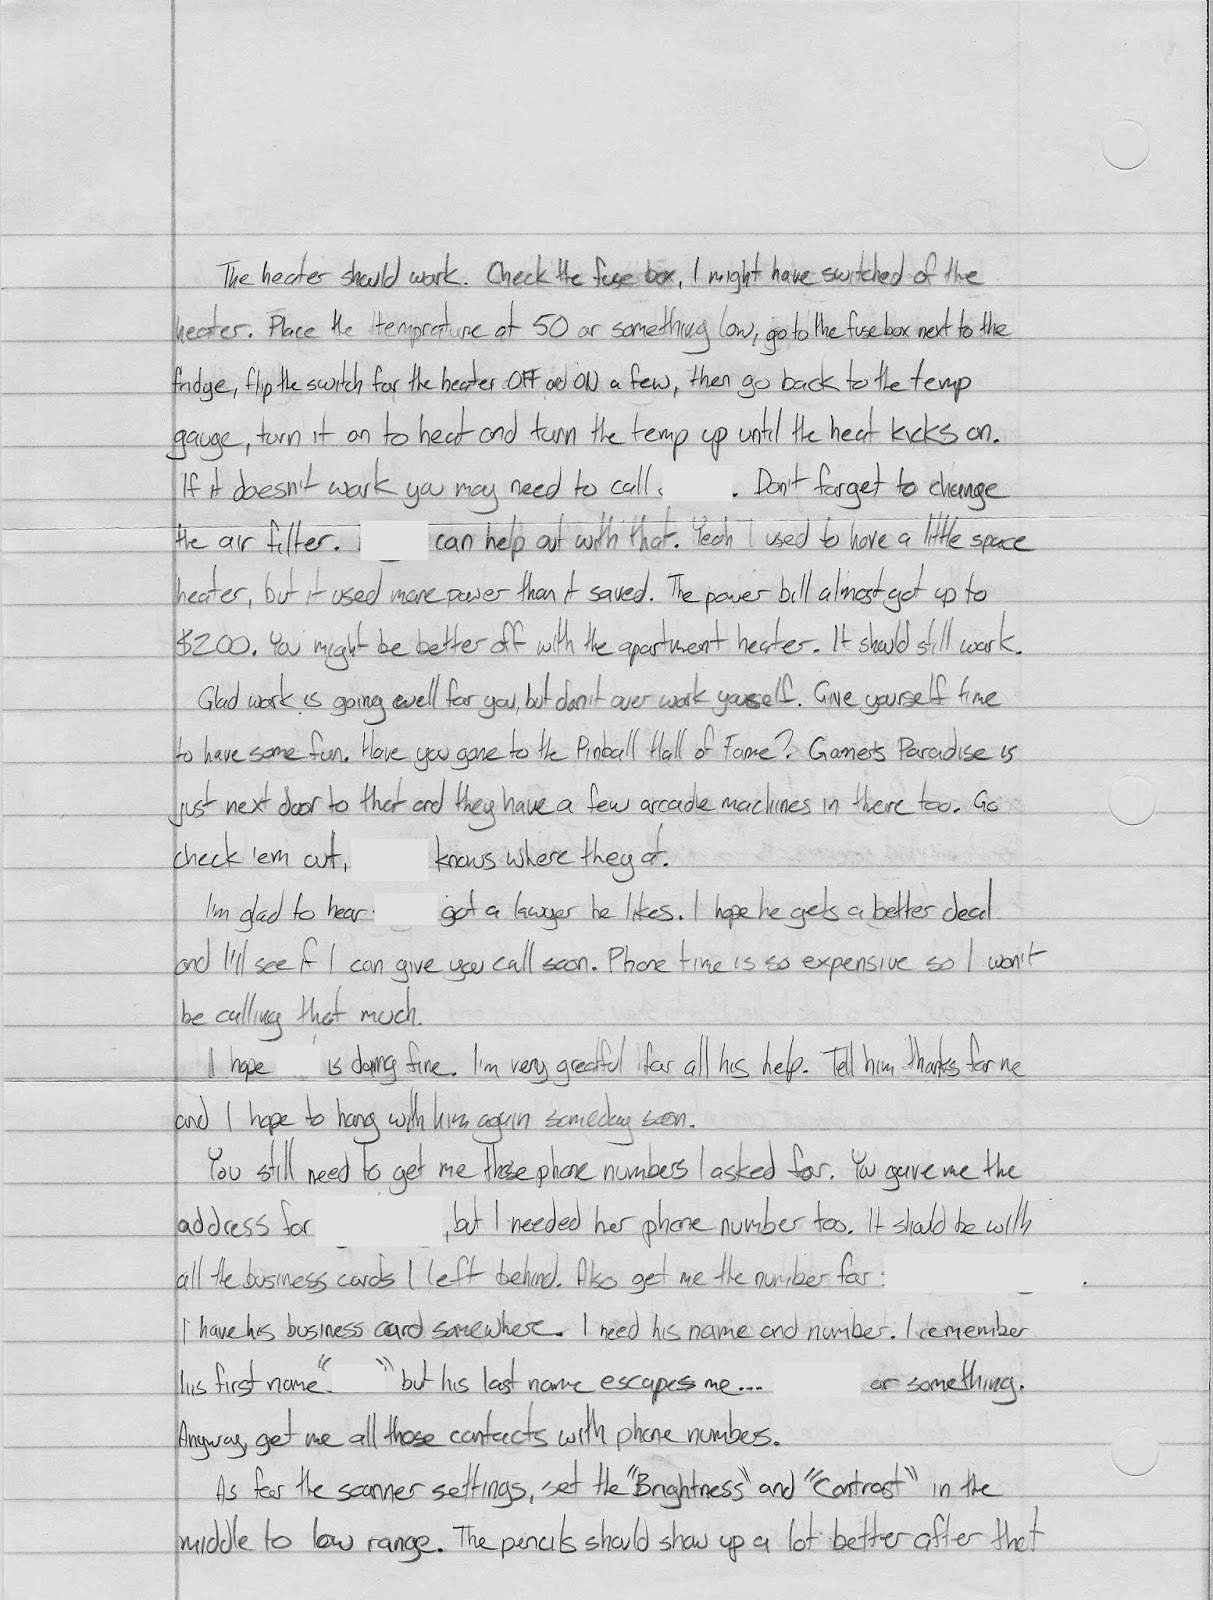 The heater should work. Check the fuse box, I might have switched of the
heater. Place the temprature at 50 or something low, go to the fuse box next to the
fridge, flip the switch for the heater OFF and ON a few, then go back to the temp
gauge, turn it on to heat and turn the temp up until the heat kicks on.
If it doesn't work you may need to call . Don't forget to change
the air filter. can help out with that. Yeah I used to have a little space
heater, but it used more power than it saved. The power bill almost got up to
$200. You might be better off with the apartment heater. It should still work.
Glad work is going well for you, but don't over work yourself. Give yourself time
to have some fun. Have you gone to the Pinball Hall of Fame? Gamers Paradise is
just next door to that and they have a few arcade machines in there too. Go
check 'em out, knows where they at.
I'm glad to hear got a lawyer he likes. I hope he gets a better deal
and I'll see if I can give you call soon. Phone time is so expensive so I won't
be calling that much.
I hope is doing fine. I'm very greatful for all his help. Tell him thanks for me
and I hope to hang with him again someday soon.
You still need to get me those phone numbers I asked for. You gave me the
address for , but I needed her phone number too. It should be with
all the business cards I left behind. Also get me the number for: .
I have his business card somewhere. I need his name and number. I remember
his first name " " but his last name escapes me... or something.
Anyway, get me all those contacts with phone numbers.
As for the scanner settings, set the "Brightness" and "Contrast" in the
middle to low range. The pencils should show up a lot better after that